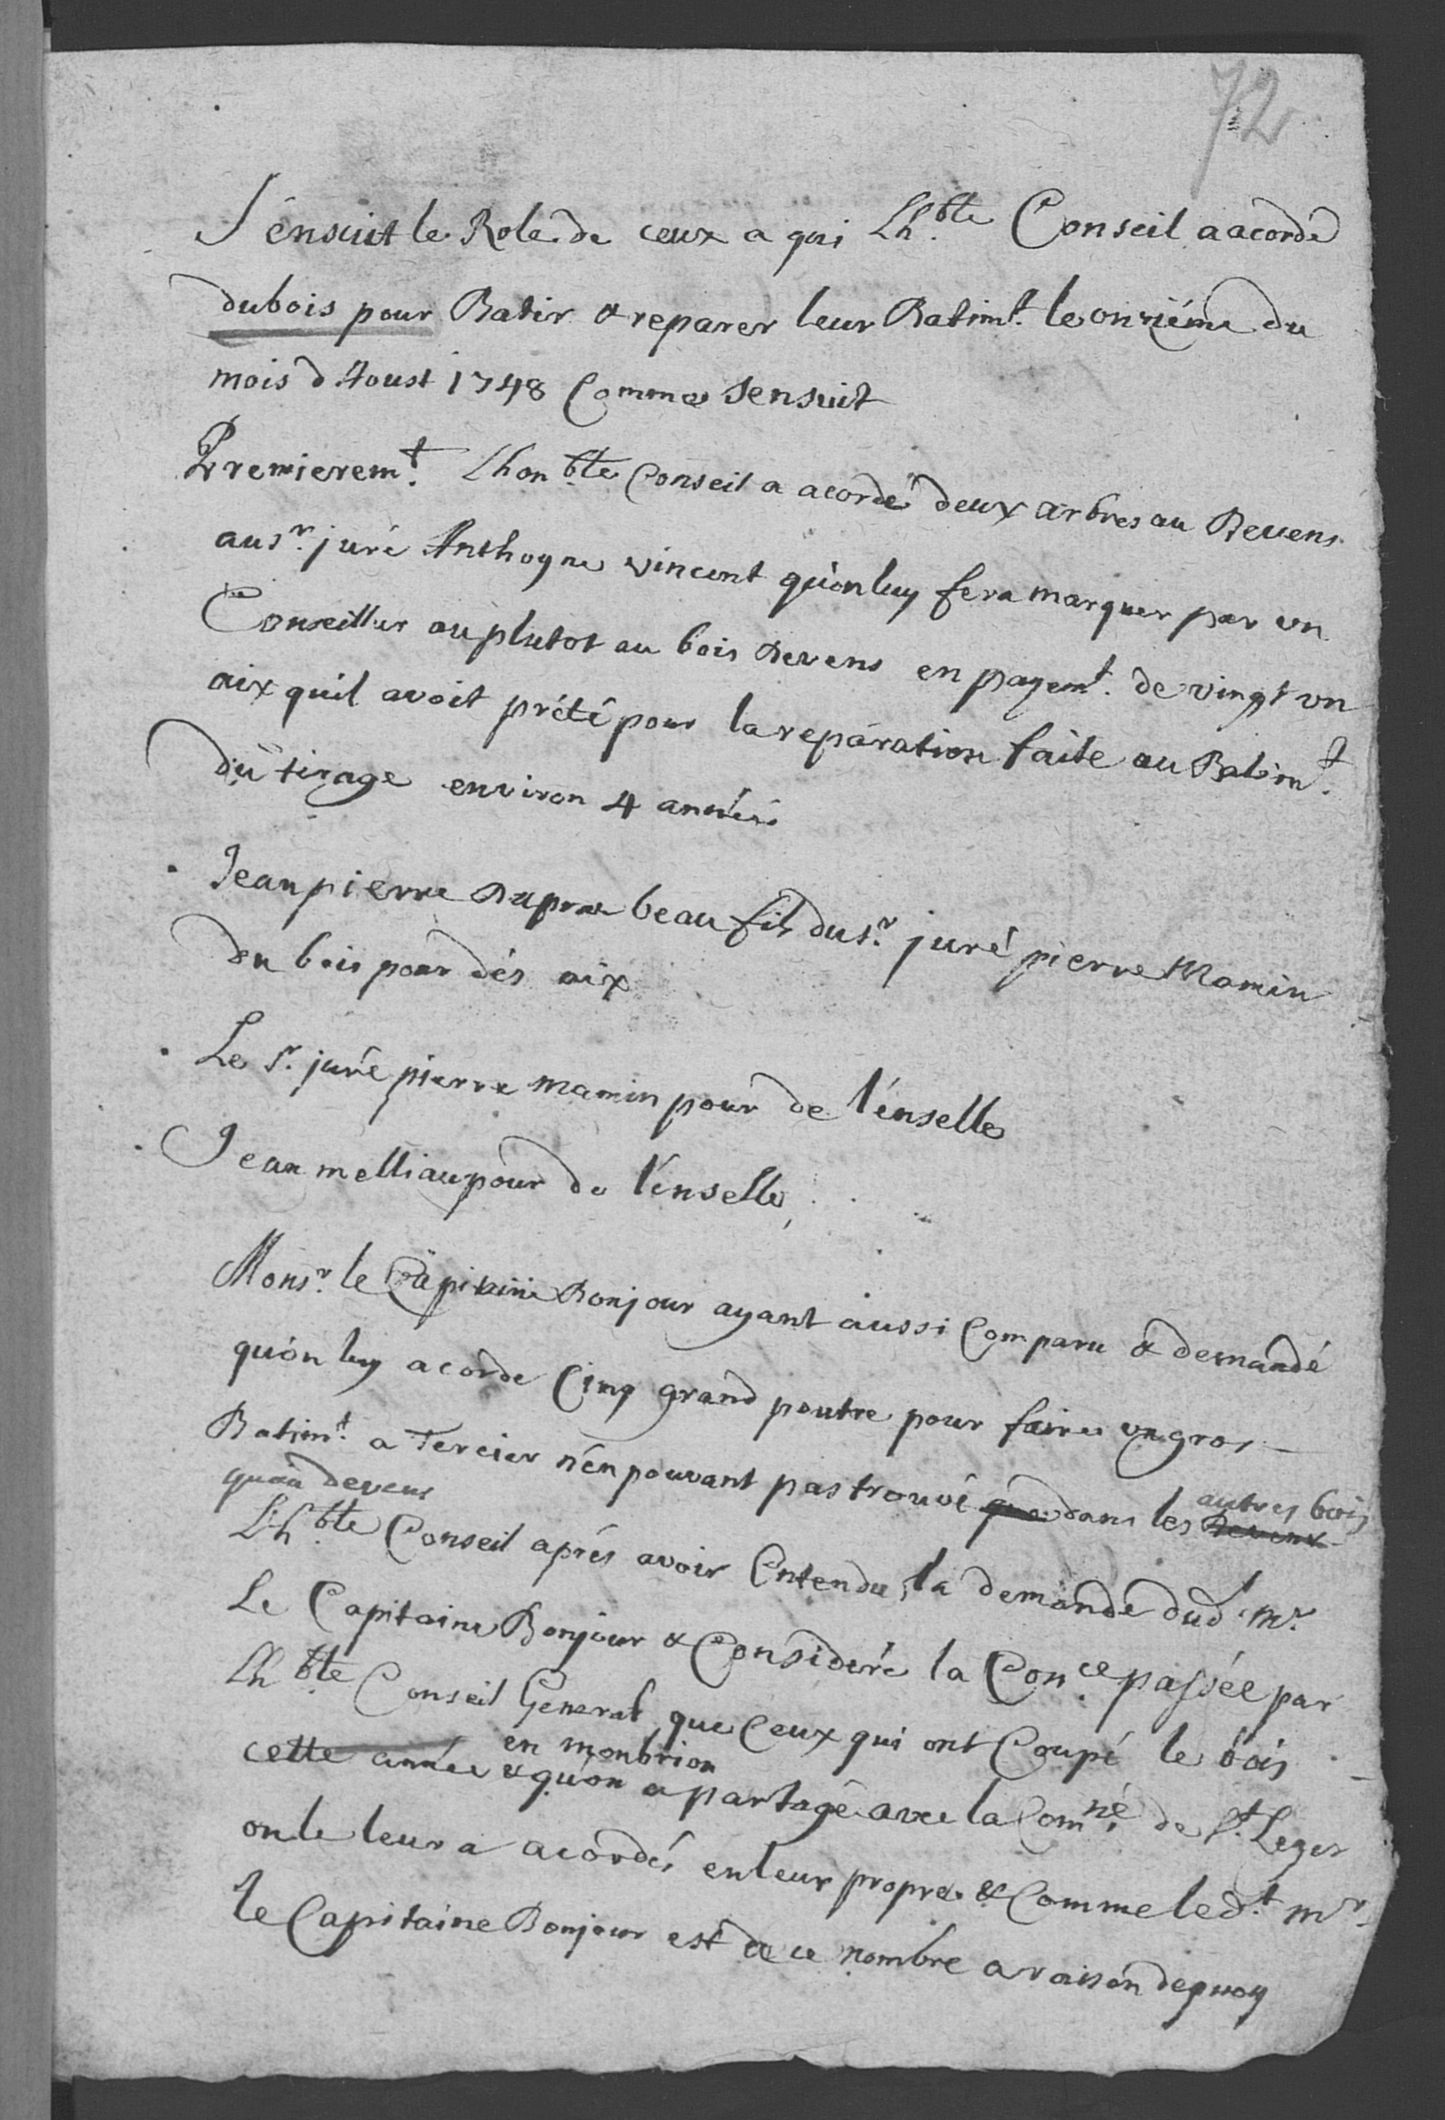 72
S'ensuit le Role de ceux a qui Lh.ble Conseil a acordé
du bois pour Batir & reparer leur Batimt. le onziéme du
mois d'Aoust 1748 Comme sensuit
Premieremt. Lhonble Conseil a acordé deux arbres au Devens
au sr. juré Anthoyne vincent qu'on luy fera marquer par un
Conseiller au plutot au bois Devens en payemt. de vingt un
aix quil avoit prété pour la reparation faite au Batimt.
du tirage environ 4 années
. Jean pierre Dupra beau fils du sr. juré pierre Mamin
du bois pour dés aix
. Le sr. juré pierre mamin pour de l'énselle
. Jean melliau pour de l'énselle
Monsr. le Capitaine Bonjour ayant aussi Comparu & demandé
qu'on luy acorde Cinq grand poutre pour faire un gros
Batimt. a Fercier n'én pouvant pas trouvé que dans les Devens autres bois
quau devens
Lh.ble Conseil aprés avoir Entendu la demande dud. mr.
Le Capitaine Bonjour & Consideré la Conce. passée par
Lh.ble Conseil General que Ceux qui ont Coupé le bois
en monbrion
cette année & qu'on a partagé avec la Comné. de St. Leger
on le leur a acordés en leur propre & Comme ledt. mr.
le Capitaine Bonjour est de ce nombre a raison dequoy